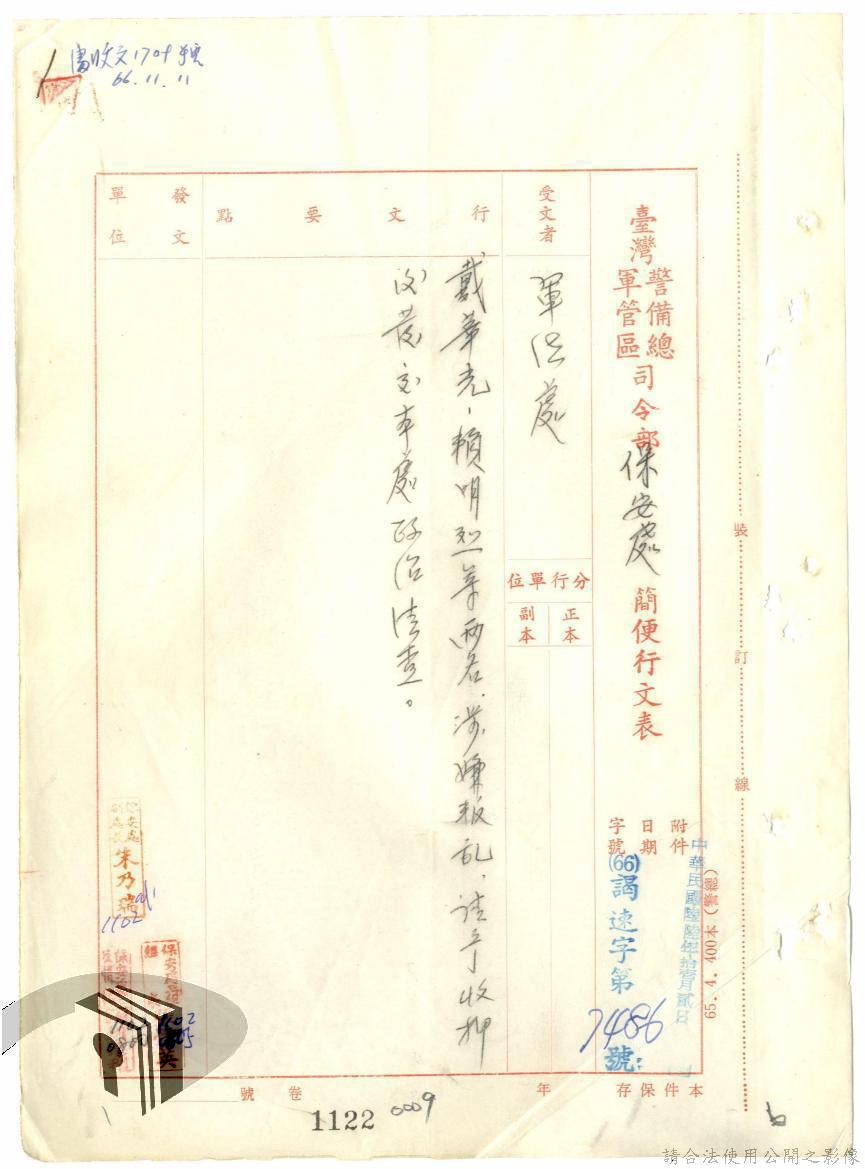 審收文1704號
66.11.11
臺灣警備總軍管區司令部保安處簡便行文表
附件
日期
字號
中華民國陸陸年拾壹月貳日
(66)謁速字第7486號
受文者
軍法處
分行單位
正本
副本
行文要點
戴華光、賴明烈等兩名、涉嫌叛乱、請予收押
後發交本處政治偵查。
發文單位
保安處副處長朱乃瑞
1102
1102
本件保存 年
卷號
1122 0009
裝
訂
線
65.4.400本(警總)
請合法使用公開之影像